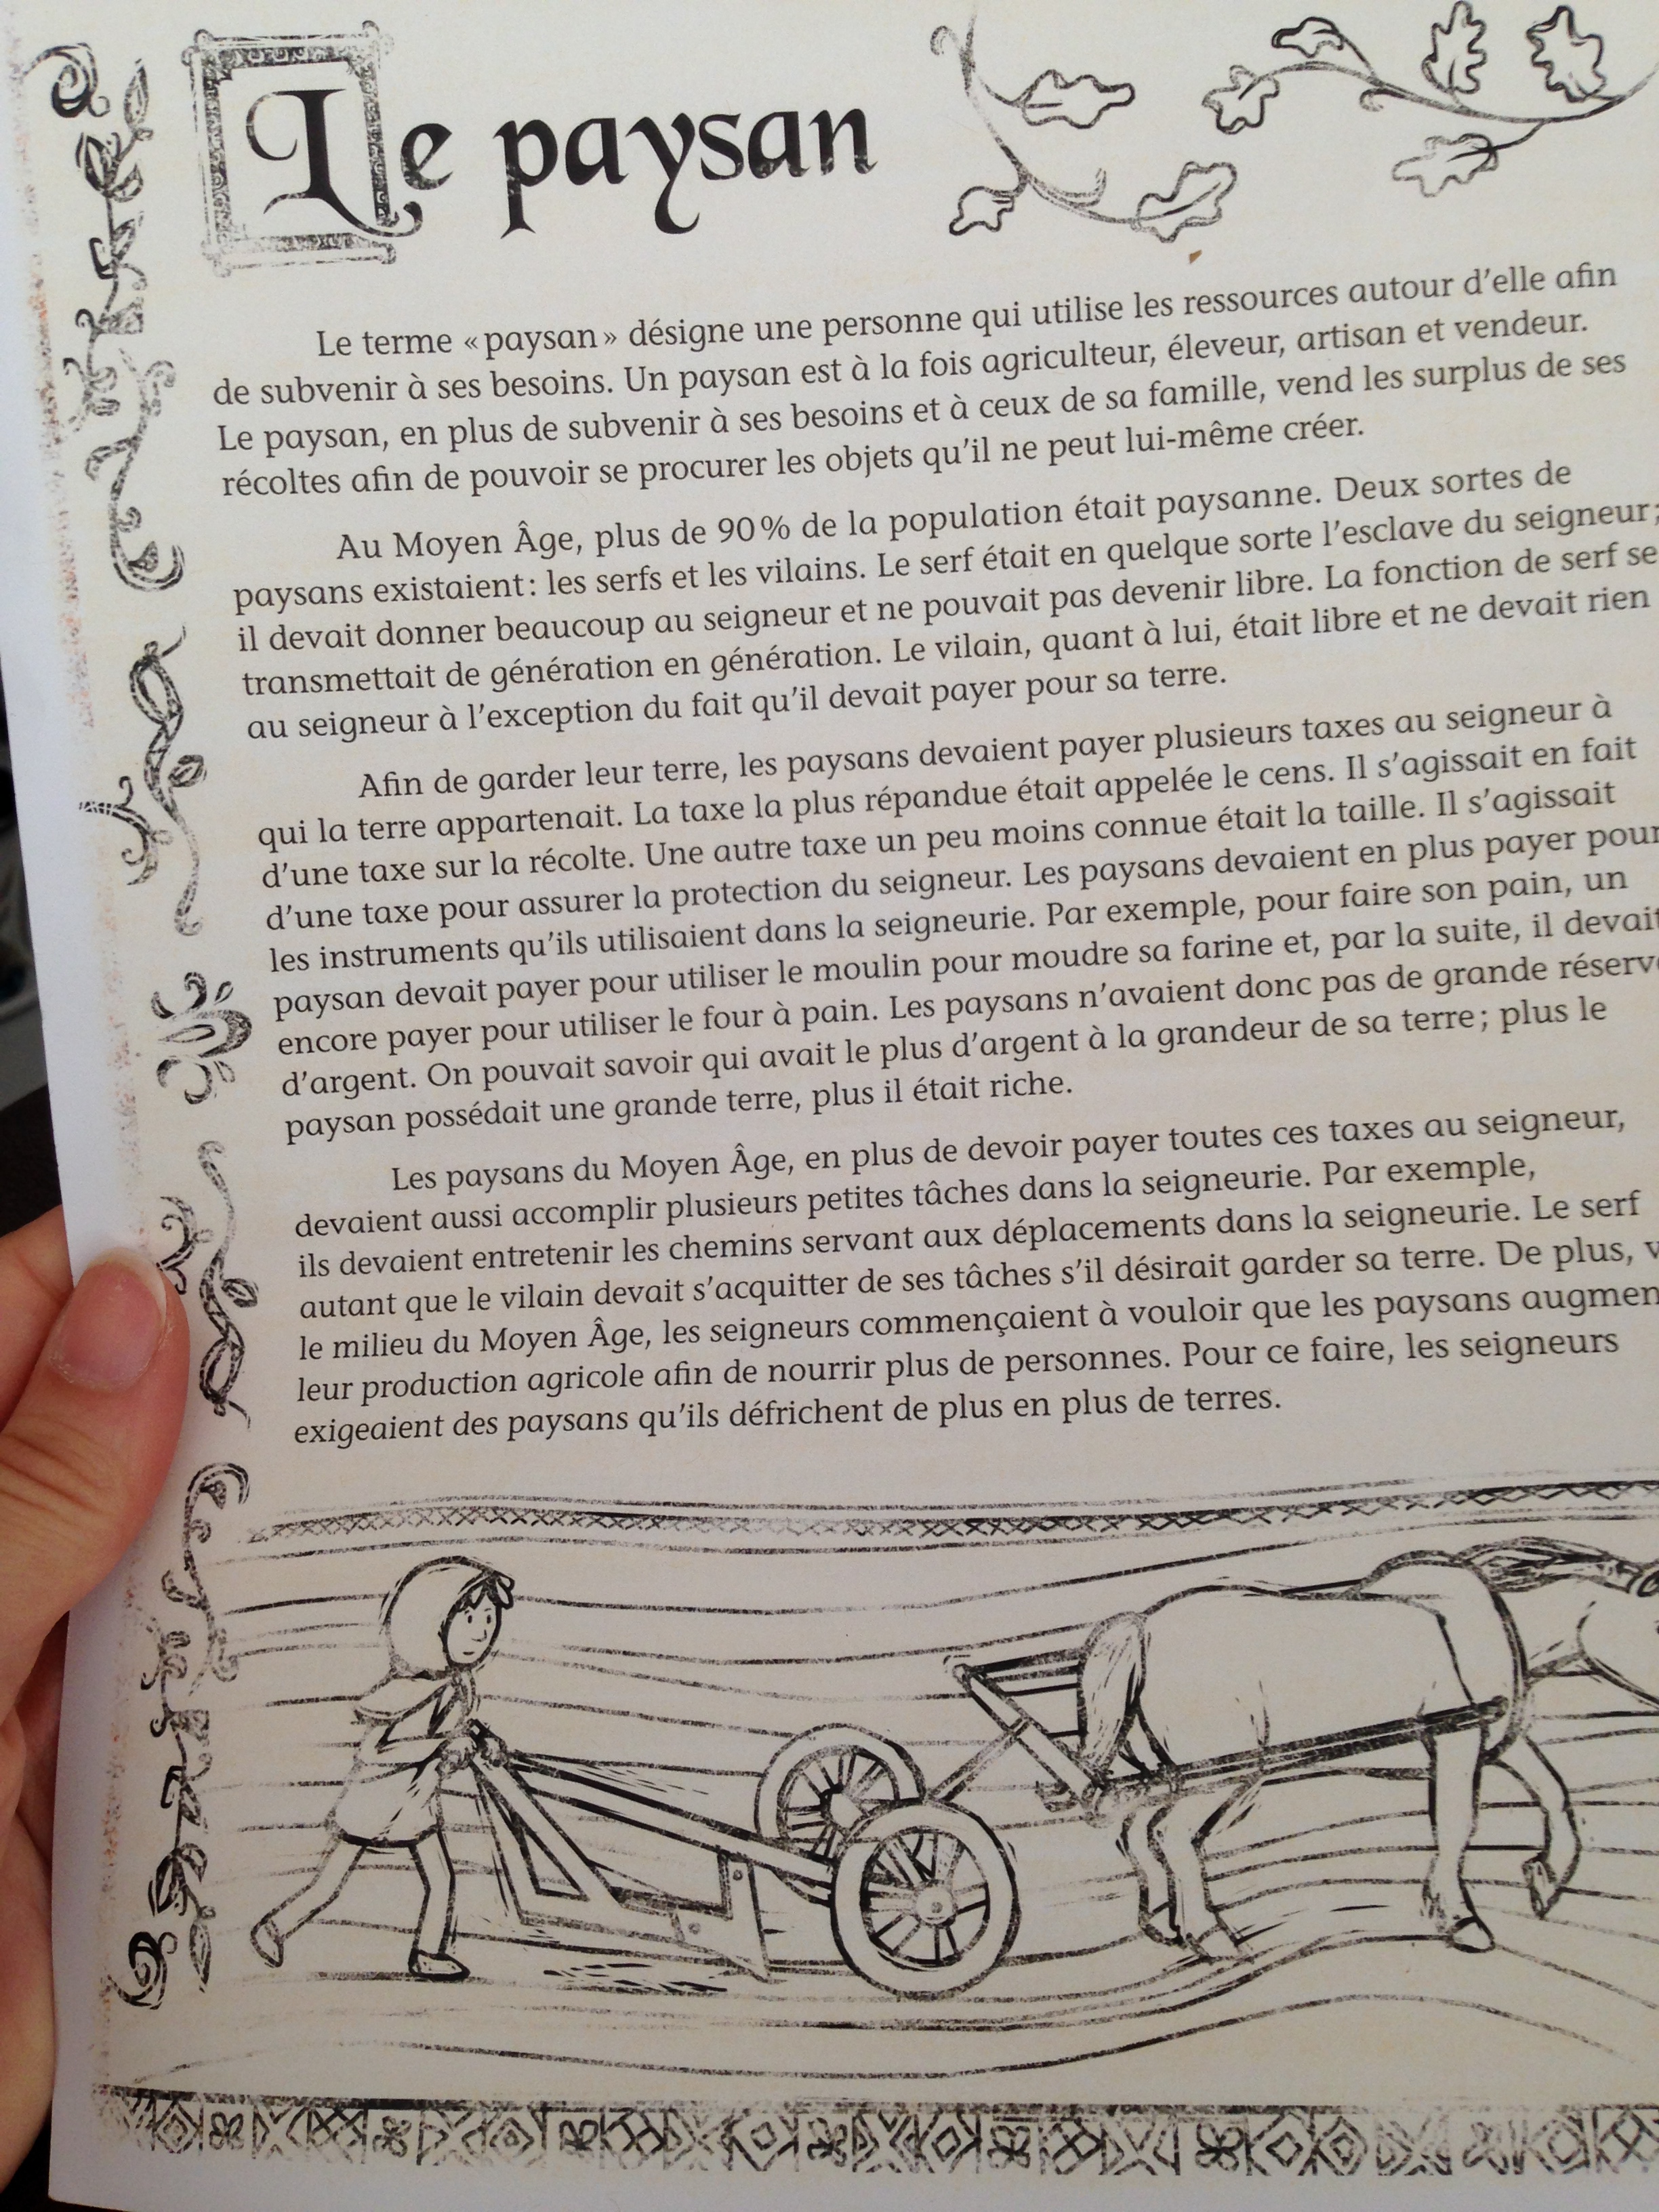 Le paysan
Le terme « paysan » désigne une personne qui utilise les ressources autour d'elle afin
de subvenir à ses besoins. Un paysan est à la fois agriculteur, éleveur, artisan et vendeur.
Le paysan, en plus de subvenir à ses besoins et à ceux de sa famille, vend les surplus de ses
récoltes afin de pouvoir se procurer les objets qu'il ne peut lui-même créer.
Au Moyen Âge, plus de 90 % de la population était paysanne. Deux sortes de
paysans existaient : les serfs et les vilains. Le serf était en quelque sorte l'esclave du seigneur ;
il devait donner beaucoup au seigneur et ne pouvait pas devenir libre. La fonction de serf se
transmettait de génération en génération. Le vilain, quant à lui, était libre et ne devait rien
au seigneur à l'exception du fait qu'il devait payer pour sa terre.
Afin de garder leur terre, les paysans devaient payer plusieurs taxes au seigneur à
qui la terre appartenait. La taxe la plus répandue était appelée le cens. Il s'agissait en fait
d'une taxe sur la récolte. Une autre taxe un peu moins connue était la taille. Il s'agissait
d'une taxe pour assurer la protection du seigneur. Les paysans devaient en plus payer pour
les instruments qu'ils utilisaient dans la seigneurie. Par exemple, pour faire son pain, un
paysan devait payer pour utiliser le moulin pour moudre sa farine et, par la suite, il devait
encore payer pour utiliser le four à pain. Les paysans n'avaient donc pas de grande réserve
d'argent. On pouvait savoir qui avait le plus d'argent à la grandeur de sa terre ; plus le
paysan possédait une grande terre, plus il était riche.
Les paysans du Moyen Âge, en plus de devoir payer toutes ces taxes au seigneur,
devaient aussi accomplir plusieurs petites tâches dans la seigneurie. Par exemple,
ils devaient entretenir les chemins servant aux déplacements dans la seigneurie. Le serf
autant que le vilain devait s'acquitter de ses tâches s'il désirait garder sa terre. De plus, v
le milieu du Moyen Âge, les seigneurs commençaient à vouloir que les paysans augmen
leur production agricole afin de nourrir plus de personnes. Pour ce faire, les seigneurs
exigeaient des paysans qu'ils défrichent de plus en plus de terres.